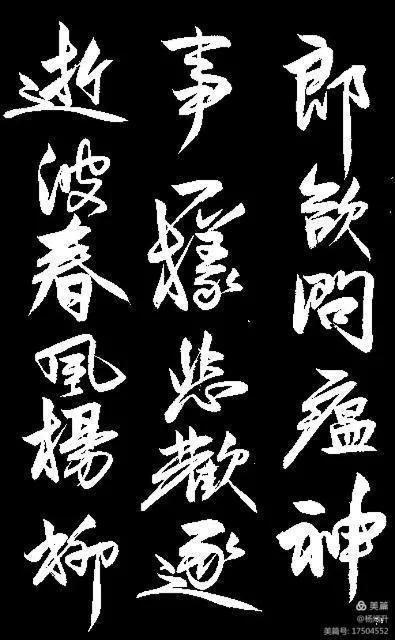 郎欲問瘟神
事一樣悲歡逐
逝波春風楊柳
美篇
@杨炳升
美篇号: 17504552